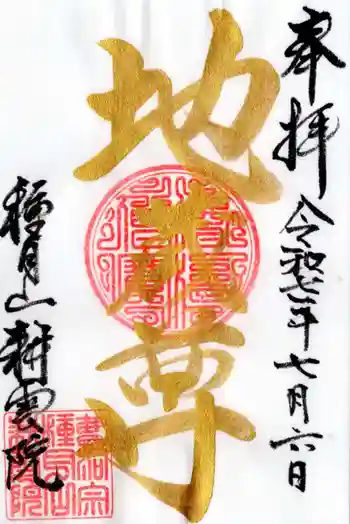 奉拝
令和七年七月六日
地蔵尊
種月山耕雲院
曹洞宗
種月山
耕雲院